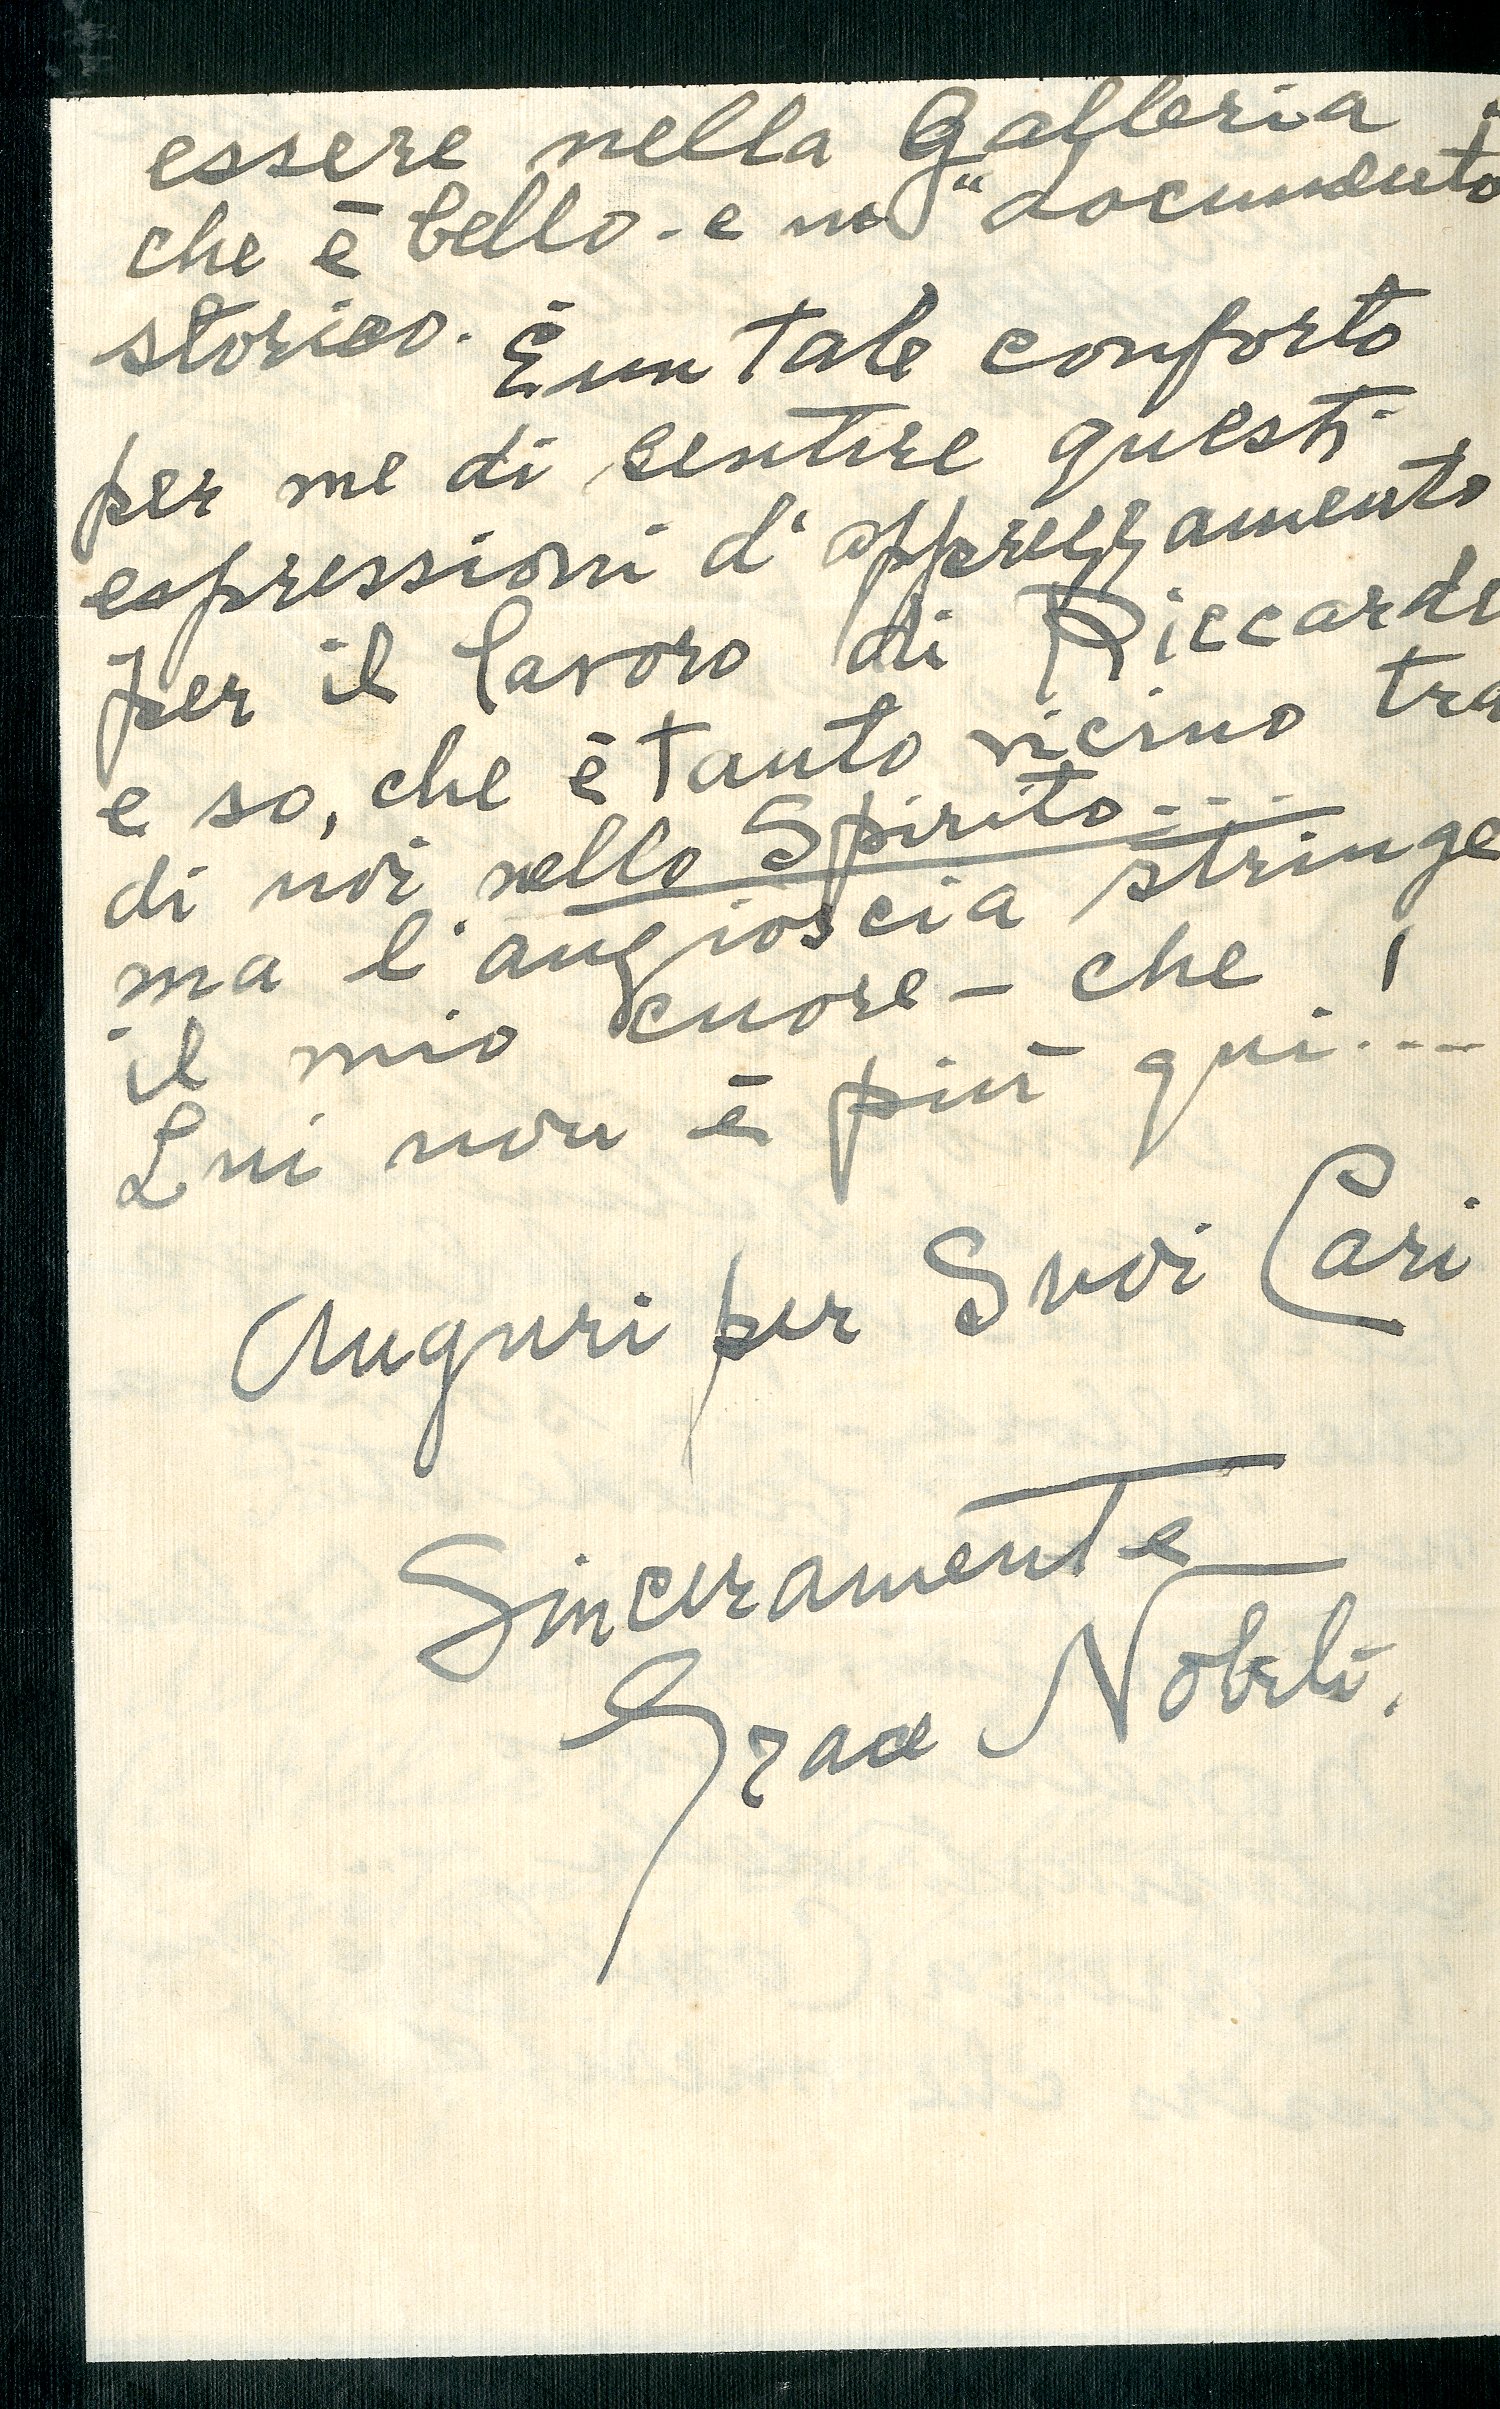 essere nella Galleria
che è bello - e un "documento
storico. È un tale conforto
per me di sentire questi
espressioni d'apprezzamento
per il lavoro di Riccardo
e so, che è tanto vicino tra
di noi nello Spirito....
ma l'angioscia stringe
il mio cuore - che !
Lui non è più qui....
Auguri per Suoi Cari
Sinceramente
Grace Nobili.